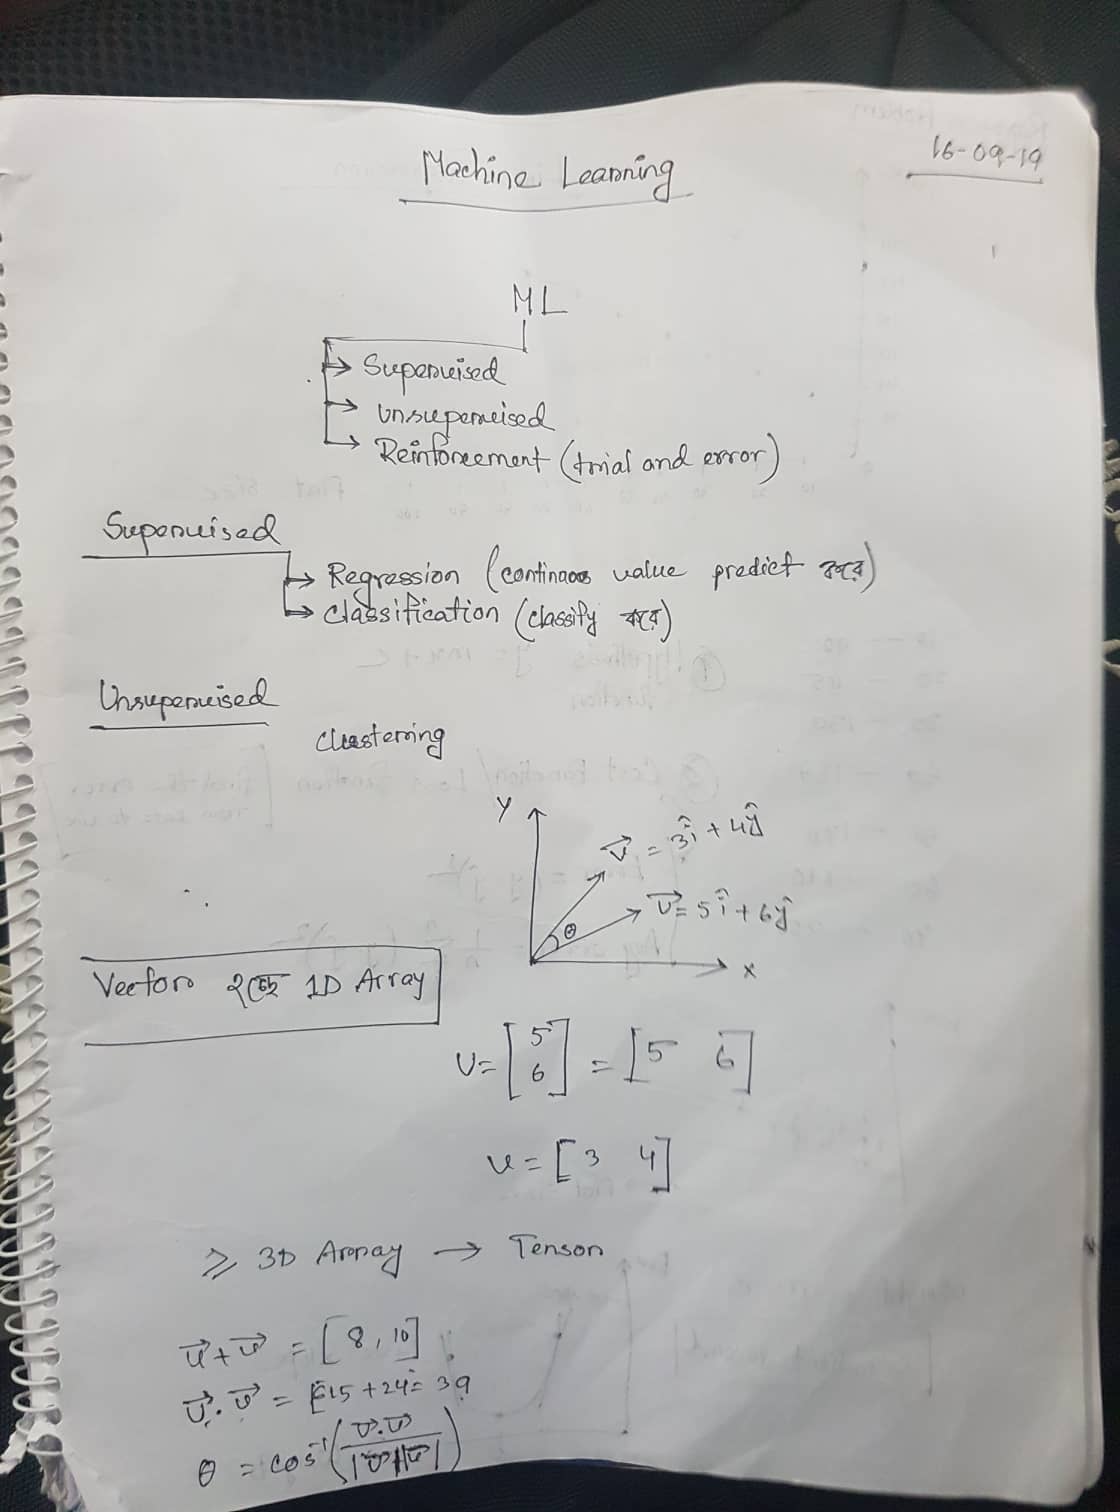 16-09-19
Machine Learning
ML
→ Supervised
→ Unsupervised
→ Reinforcement (trial and error)
Supervised
→ Regression (continuous value predict করে)
→ Classification (classify করে)
Unsupervised
Clustering
Y
v⃗ = 3î + 4ĵ
U⃗ = 5î + 6ĵ
θ
x
Vector হচ্ছে 1D Array
U = [5 6] = [5 6]
v = [3 4]
≥ 3D Array → Tensor
u⃗ + v⃗ = [8, 10]
U⃗ . v⃗ = 15 + 24 = 39
θ = cos⁻¹ (U⃗.v⃗ / |U⃗||v⃗|)